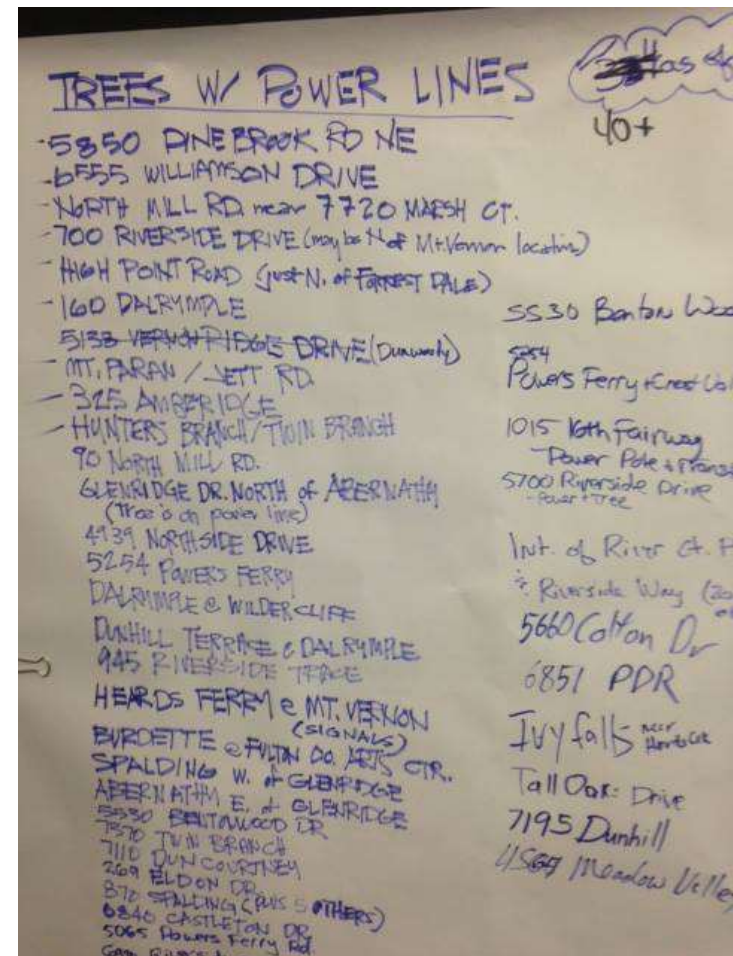 TREES W/ POWER LINES
Has
40+
- 5850 PINEBROOK RD NE
- 6555 WILLIAMSON DRIVE
- NORTH MILL RD. near 7720 MARSH CT.
- 700 RIVERSIDE DRIVE (maybe N of Mt. Vernon location)
- HIGH POINT ROAD (just N. of FORREST DALE)
- 160 DALRYMPLE
5133 VERNON RIDGE DRIVE (Dunwoody)
- MT. PARAN / JETT RD.
- 325 AMBERIDGE
- HUNTERS BRANCH / TWIN BRANCH
90 NORTH MILL RD.
GLENRIDGE DR. NORTH of ABERNATHY
(Tree is on power line)
4939 NORTHSIDE DRIVE
5254 POWERS FERRY
DALRYMPLE @ WILDERCLIFF
DUNHILL TERRACE @ DALRYMPLE
945 RIVERSIDE TRACE
HEARDS FERRY @ MT. VERNON
(SIGNALS)
BURDETTE @ FULTON CO. ARTS CTR.
SPALDING W. of GLENRIDGE
ABERNATHY E. of GLENRIDGE
5530 BENTONWOOD DR
7370 TWIN BRANCH
7110 DUNCOURTNEY
269 ELDON DR.
870 SPALDING (PLUS 5 OTHERS)
6840 CASTLETON DR
5065 Powers Ferry Rd.
5530 Benton
5254
Powers Ferry + Crest
1015 16th Fairway
- Power Pole +
5700 Riverside Drive
- Power + Tree
Int. of River Ct.
& Riverside Way
5660 Colton Dr
6851 PDR
Ivy falls near
Tall Oaks Drive
7195 Dunhill
4569 Meadow Valley